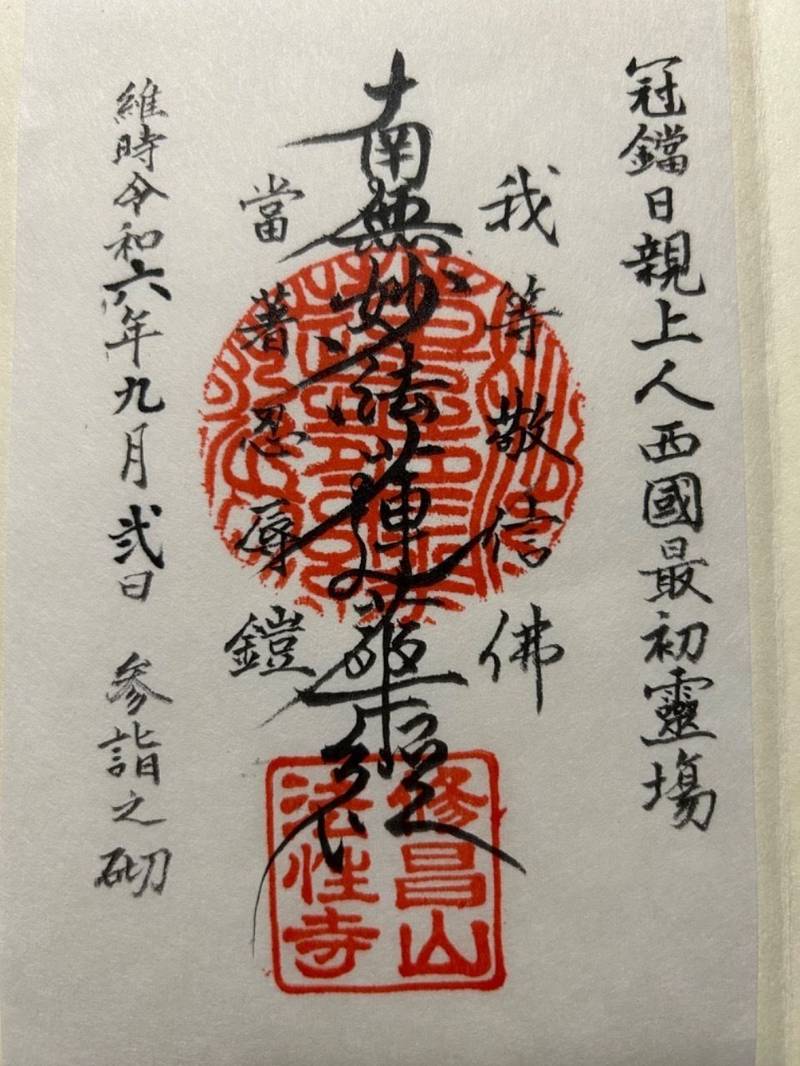 冠鐺日親上人西國最初靈場
我等敬信佛
南無妙法蓮華經
當著忍辱鎧
維時令和六年九月弐日 参詣之砌
修昌山
法性寺